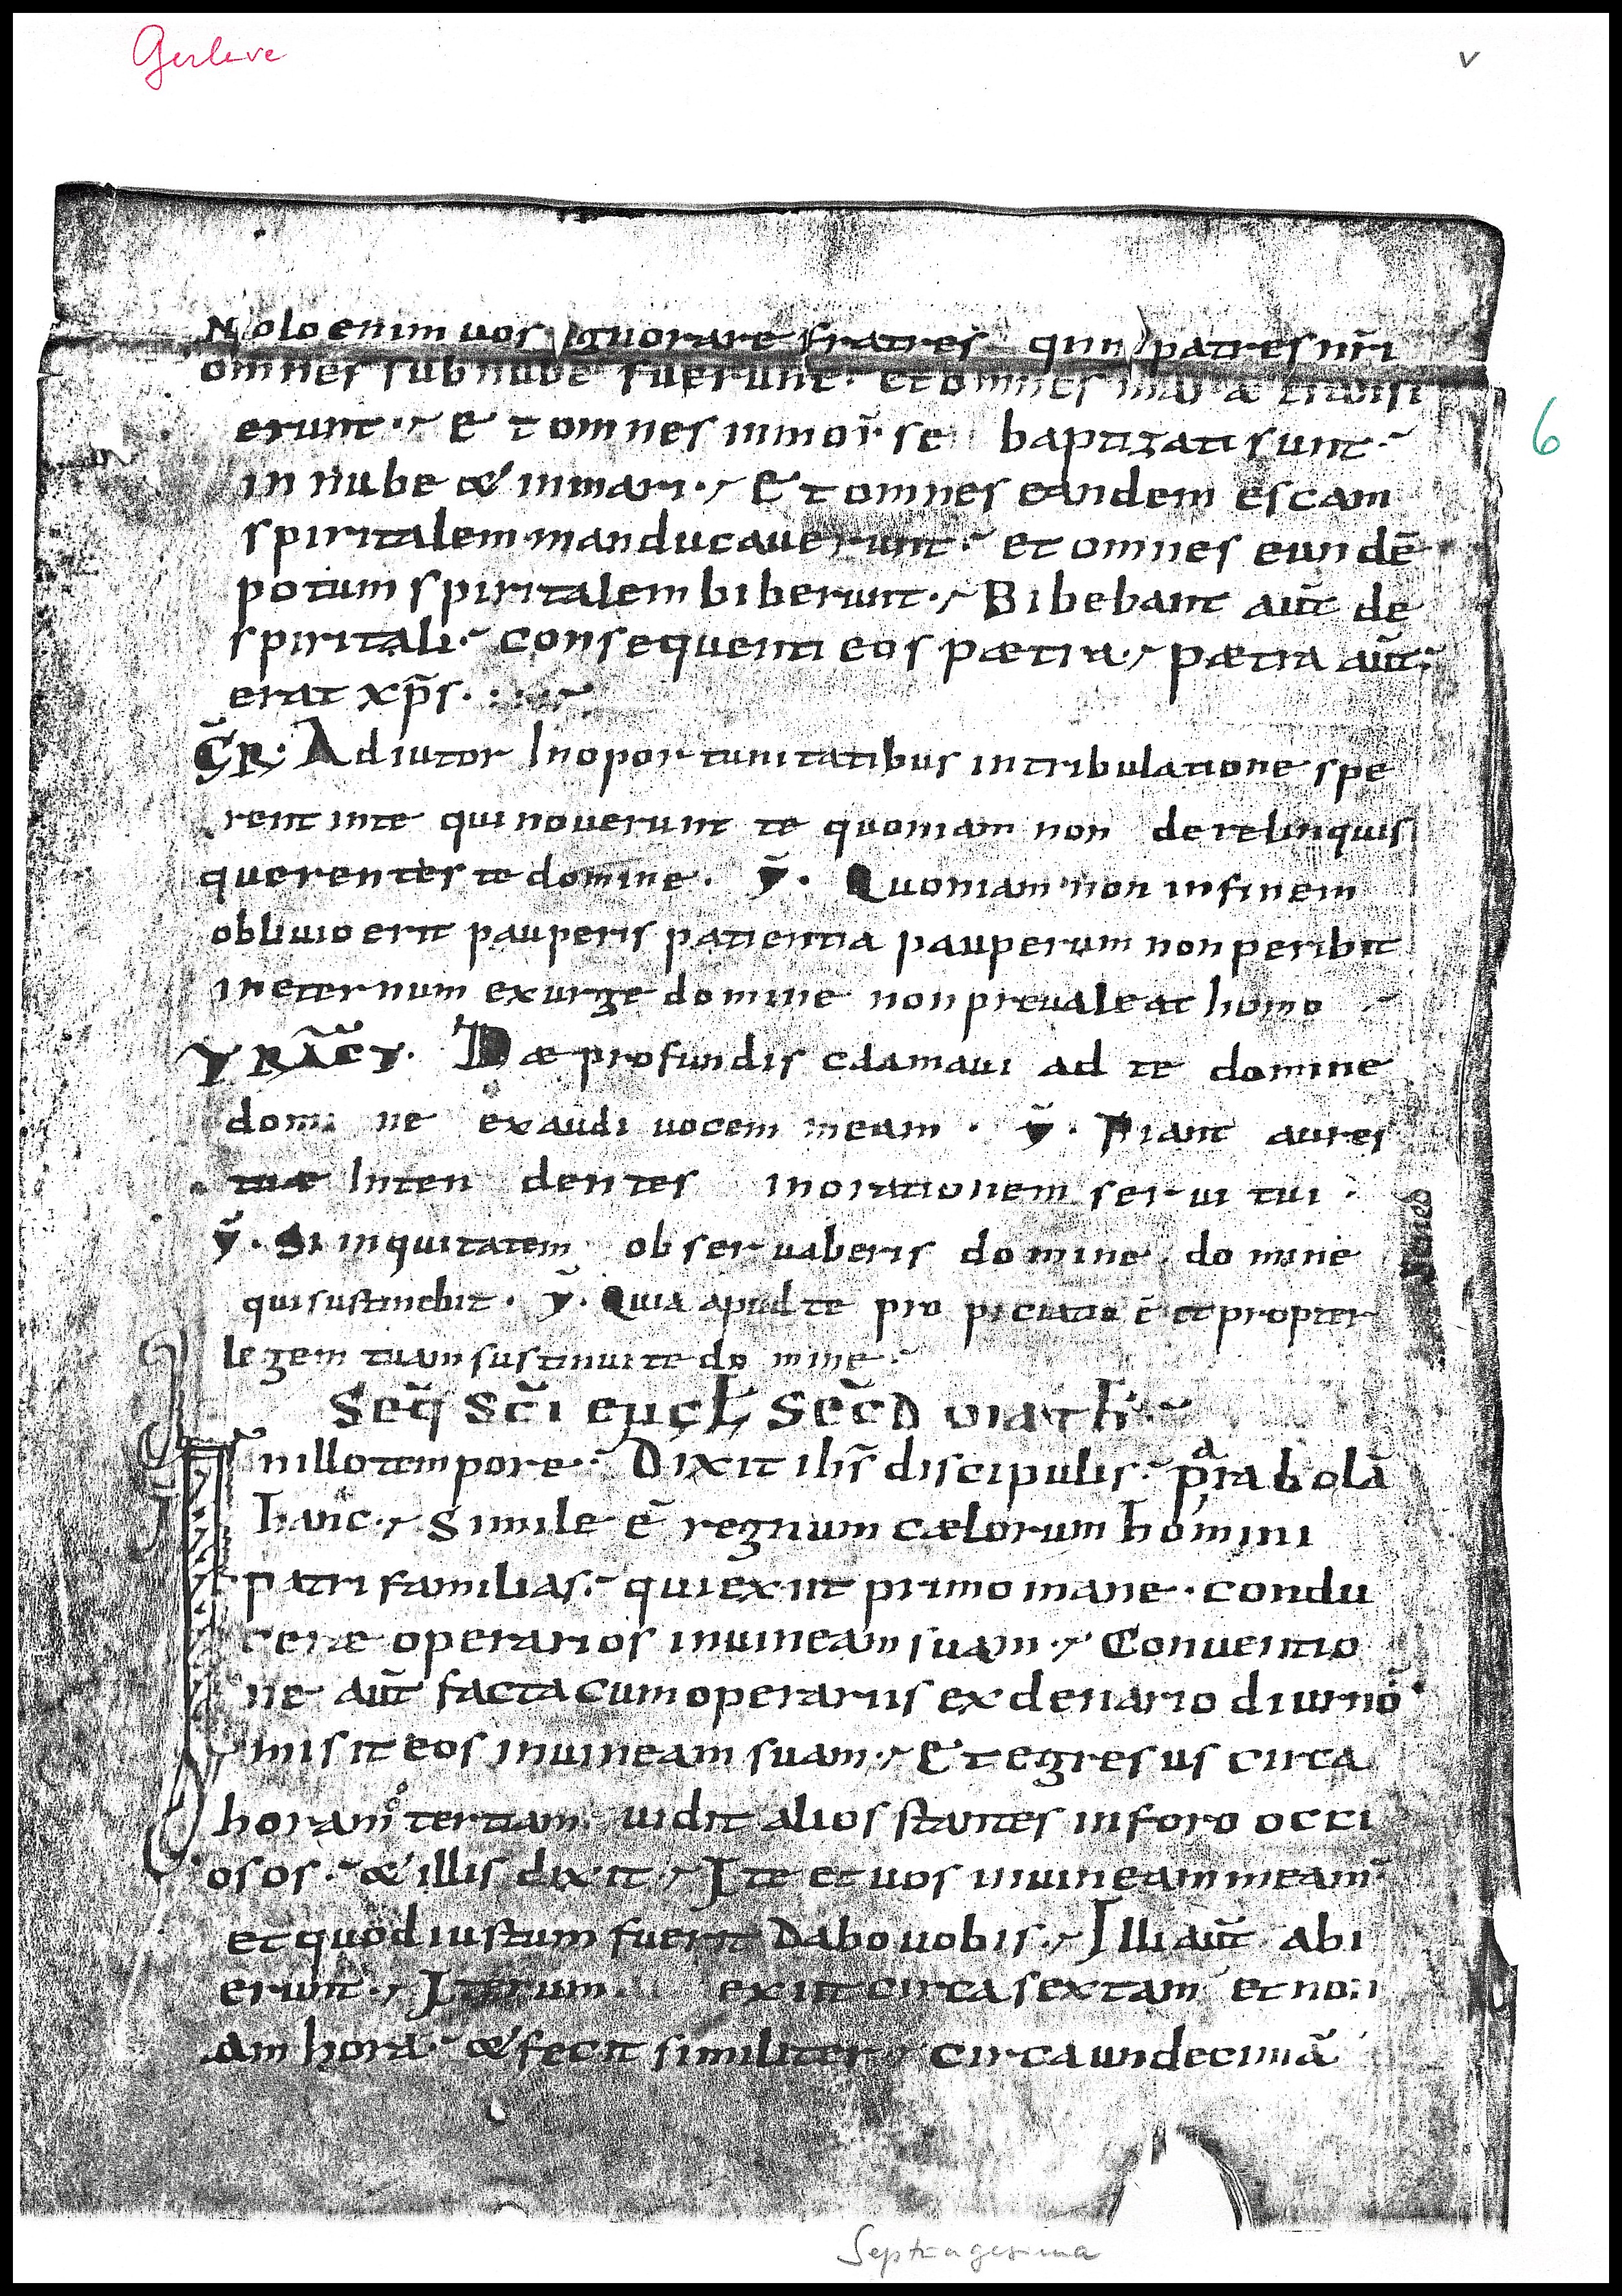 Gerleve
v
Nolo enim uos ignorare fratres qm̄ patres nr̄i
omnes sub nube fuerunt. et omnes mare transi
erunt. Et omnes in moi.se baptizati sunt.
in nube & in mari. Et omnes eandem escam
6
spiritalem manducauerunt. et omnes eundē
potum spiritalem biberunt. Bibebant aut̄ de
spiritali. consequenti eos pætra. pætra aut̄
erat xp̄s.
GR. Adiutor In oportunitatibus in tribulatione spe
rent in te qui nouerunt te quoniam non derelinquis
querentes te domine. ỹ. Quoniam non in finem
obliuio erit pauperis patientia pauperum non peribit
in eternum exurge domine non preualeat homo
TRACT. Dæ profundis clamaui ad te domine
domi ne exaudi uocem meam. ỹ. Fiant aures
tuæ Inten dentes in orationem serui tui.
ỹ. Si inquitatem obseruaberis domine domine
qui sustinebit. ỹ. Quia apud te pro piciatio ē et propter
legem tuam sustinui te do mine.
Seq̄ Sc̄i eugl̄ Sec̄d math.
In illo tempore. Dixit ihs̄ discipulis. parabolā
hanc. Simile ē regnum cælorum homini
patri familias. qui exiit primo mane. condu
cere operarios in uineam suam. Conuentio
ne aut̄ facta cum operariis ex denario diurno
misit eos in uineam suam. Et egresus circa
horam tertiam. uidit alios stantes in foro occi
osos. & illis dixit. Ite et uos in uineam meam
et quod iustum fuerit dabo uobis. Illi aut̄ abi
erunt. Iterum exiit circa sextam et non
am hora. & fecit similiter. circa undecimā
Septuagesima